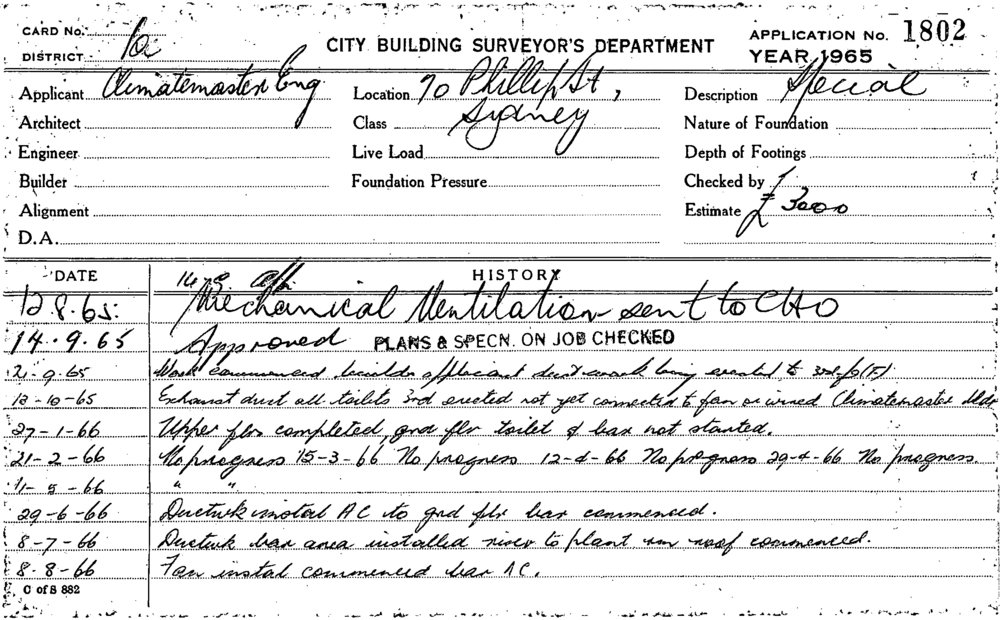 CARD No. 1a
DISTRICT
CITY BUILDING SURVEYOR'S DEPARTMENT
APPLICATION No. 1802
YEAR 1965
Applicant Climatemaster Eng
Location 70 Phillip St,
Sydney
Description Special
Architect
Class
Nature of Foundation
Engineer
Live Load
Depth of Footings
Builder
Foundation Pressure
Checked by
Alignment
Estimate £ 3000
D.A.
DATE HISTORY
12.8.65: Mechanical Ventilation sent to CHO
14.9.65 Approved PLANS & SPECN. ON JOB CHECKED
21-9-65 Work commenced builder applicant duct work being erected to 3rd flr
12-10-65 Exhaust duct all toilets 3rd erected not yet connected to fan or wired Climatemaster bldr
27-1-66 Upper flrs completed, grd flr toilet & bar not started.
21-2-66 No progress 15-3-66 No progress 12-4-66 No progress 29-4-66 No progress.
11-5-66 " "
29-6-66 Ductwk instal AC to grd flr bar commenced.
8-7-66 Ductwk bar area installed riser to plant rm roof commenced.
8-8-66 Fan instal commenced bar AC.
C of S 882